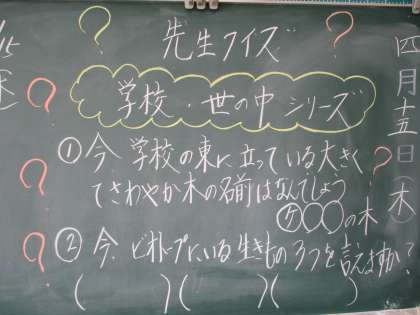 先生クイズ
学校・世の中シリーズ
①今 学校の東に立っている大きく
てさわやか木の名前はなんでしょう
㋘〇〇〇の木
②今、ビオトープにいる生きもの3つを言えますか?
(　　)(　　)(　　)
四月十五日(木)
/15
木